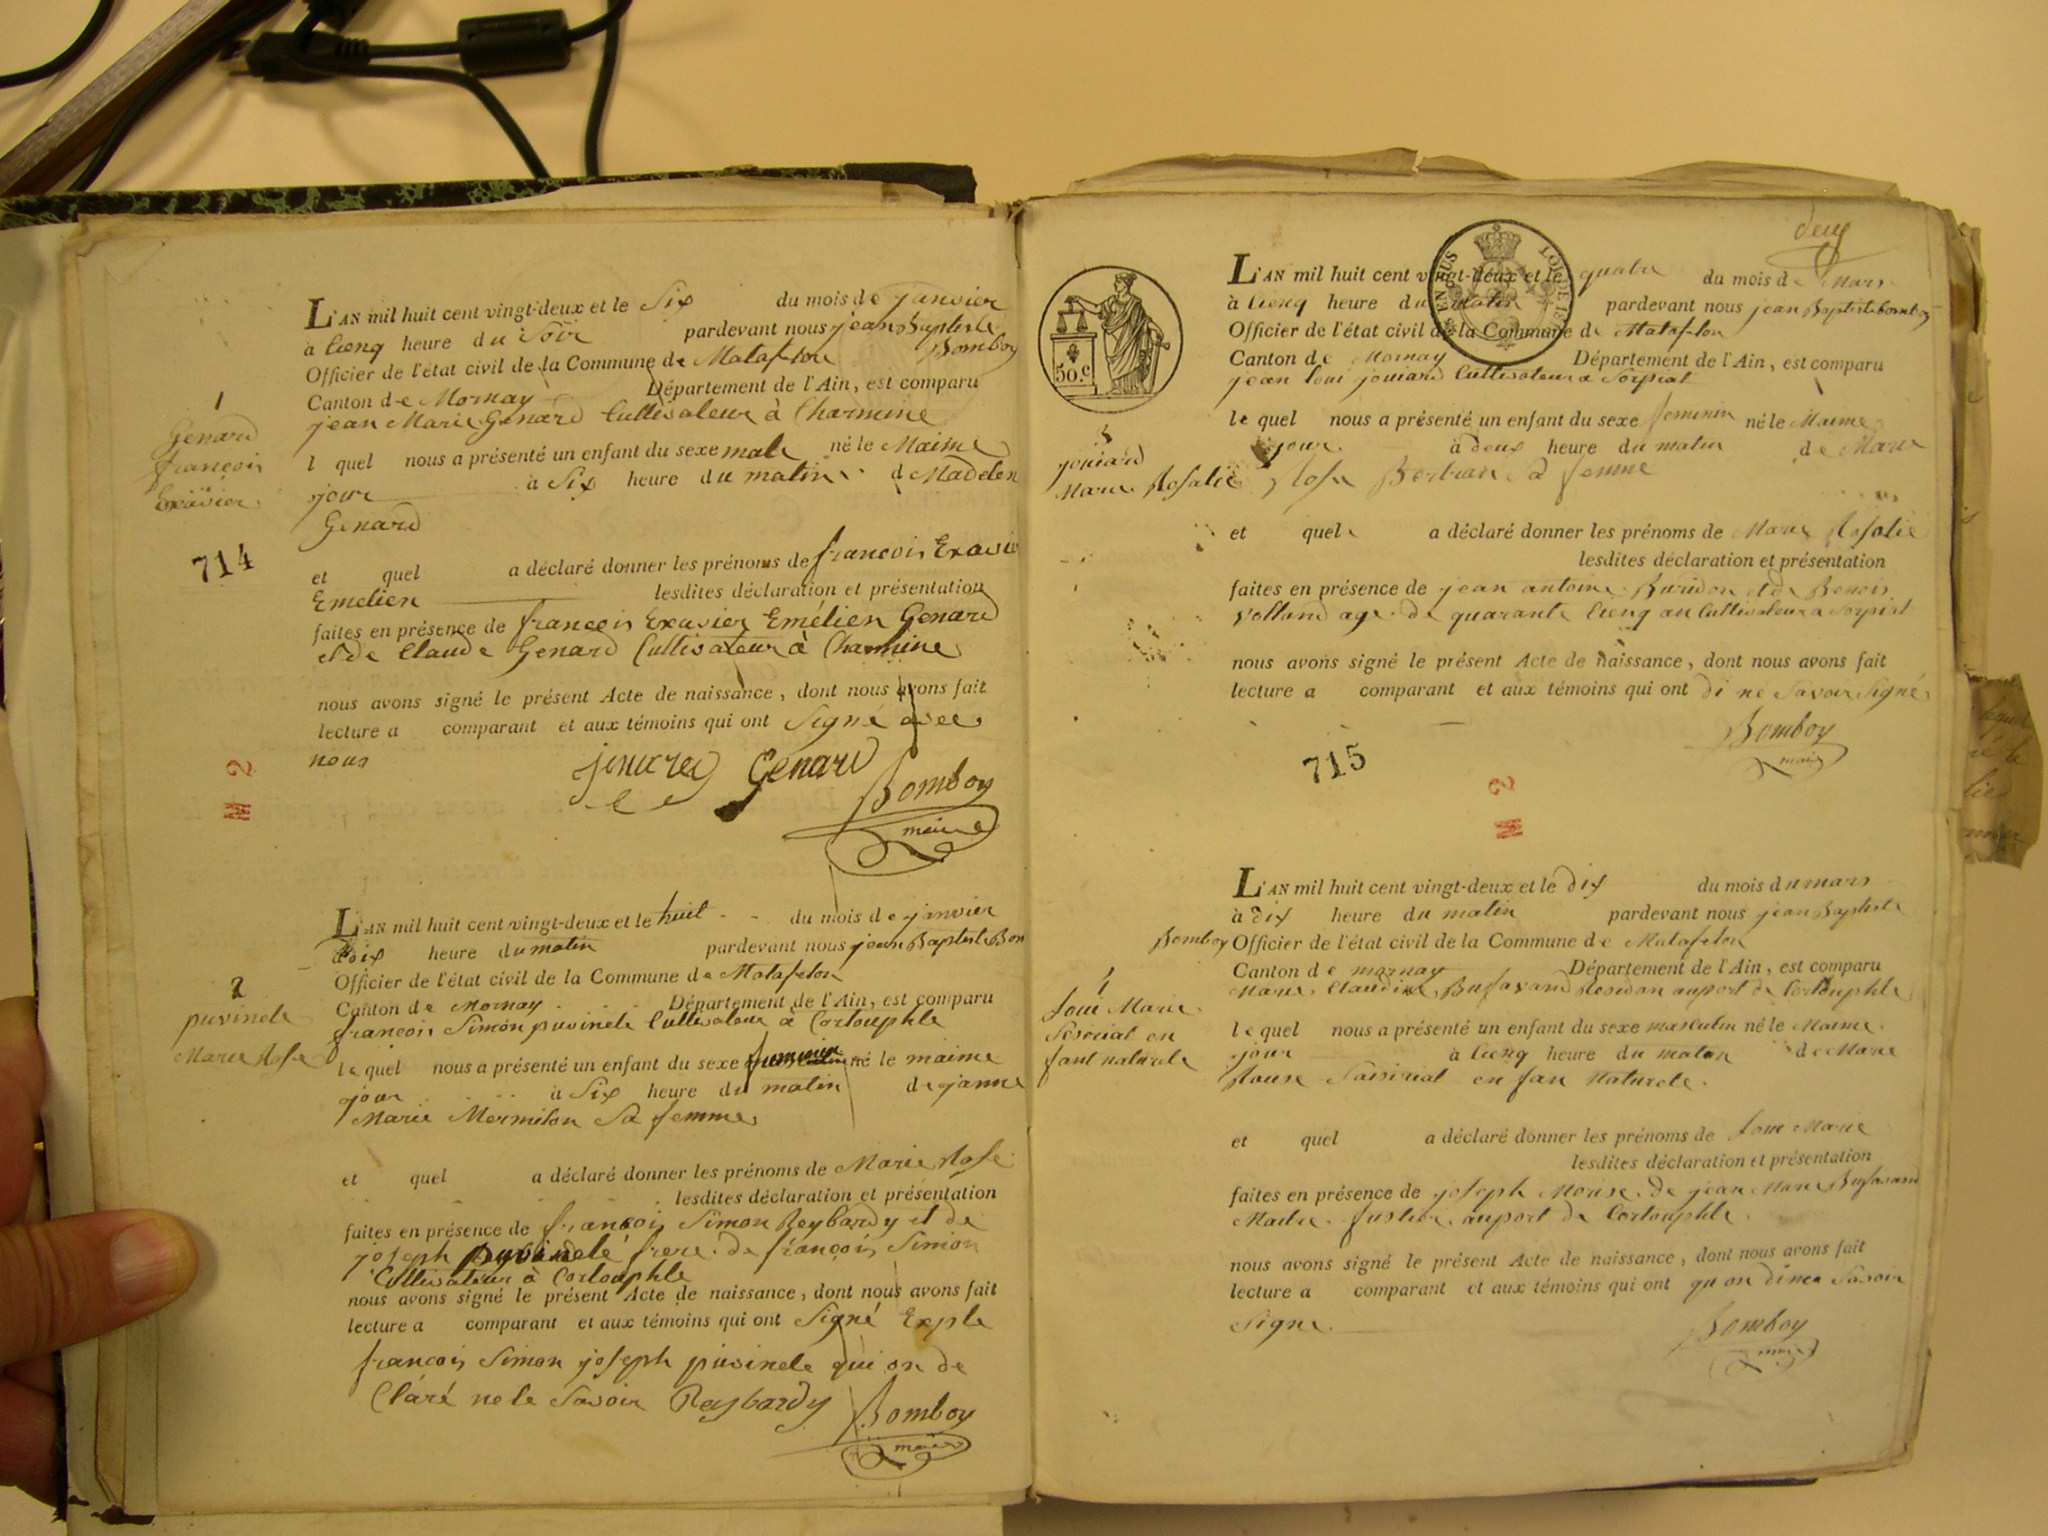 L'AN mil huit cent vingt-deux et le Six du mois de janvier
à cienq heure du Soir pardevant nous jean Baptiste
Bomboy
Officier de l'état civil de la Commune de Matafelon
Canton de Mornay Département de l'Ain, est comparu
jean Marie Genard Cultivateur à Charmine
l quel nous a présenté un enfant du sexe male né le Maime
jour à Six heure du matin d Madelen
Genard
1
Genard
françois
Exavier
714
et quel a déclaré donner les prénoms de françois Exavie
Emelien lesdites déclaration et présentation
faites en présence de françois Exavier Emélien Genard
et de Claude Genard Cultivateur à Charmine
nous avons signé le présent Acte de naissance, dont nous avons fait
lecture a comparant et aux témoins qui ont Signé avec
nous
Genard
Bomboy
maire
2
L'AN mil huit cent vingt-deux et le huit du mois de janvier
à dix heure du matin pardevant nous jean Baptiste Bom
Officier de l'état civil de la Commune de Matafelon
Canton de Mornay Département de l'Ain, est comparu
francois Simon puvinele Cultivateur à Corlouphle
le quel nous a présenté un enfant du sexe feminin né le maime
jour à Six heure du matin de janne
Marie Mermilon Sa femme
2
puvinele
Marie Rose
et quel a déclaré donner les prénoms de Marie Rose
lesdites déclaration et présentation
faites en présence de françois Simon Reybardy et de
joseph puvinelé frere de françois Simon
Cultivateur à Corlouphle
nous avons signé le présent Acte de naissance, dont nous avons fait
lecture a comparant et aux témoins qui ont Signé Exple
francois Simon joseph puvinele qui on de
Claré ne le Savoir Reybardy
Bomboy
maire
deux
L'AN mil huit cent vingt-deux et le quatre du mois de Mars
à Cienq heure du matin pardevant nous jean Baptiste bomboy
Officier de l'état civil de la Commune de Matafelon
Canton de Mornay Département de l'Ain, est comparu
jean loui jouiard Cultivateur a Sorpiat
50.c
le quel nous a présenté un enfant du sexe feminin né le Maime
jour à deux heure du matin de Marie
Rose Bertran Sa femme
jouiard
Marie Rosalie
et quel a déclaré donner les prénoms de Marie Rosalie
lesdites déclaration et présentation
faites en présence de jean antoine Buridon et de Benois
Volland age de quarante Cienq an Cultivateur a Sorpiat
nous avons signé le présent Acte de naissance, dont nous avons fait
lecture a comparant et aux témoins qui ont di ne Savoir Signé
Bomboy
maire
715
2
L'AN mil huit cent vingt-deux et le dix du mois du mars
à dix heure du matin pardevant nous jean Baptiste
Bomboy Officier de l'état civil de la Commune de Matafelon
Canton de mornay Département de l'Ain, est comparu
Marie Claudine Bufavand Residan auport de Corlouphle
le quel nous a présenté un enfant du sexe masculin né le Maime
jour à Cienq heure du matan de Marie
en fan Naturele
loui Marie
en
fant naturele
et quel a déclaré donner les prénoms de loui Marie
lesdites déclaration et présentation
faites en présence de joseph Moise de jean Marie Bufavand
auport de Corlouphle
nous avons signé le présent Acte de naissance, dont nous avons fait
lecture a comparant et aux témoins qui ont qu on dinea Savoir
Signe
Bomboy
maire